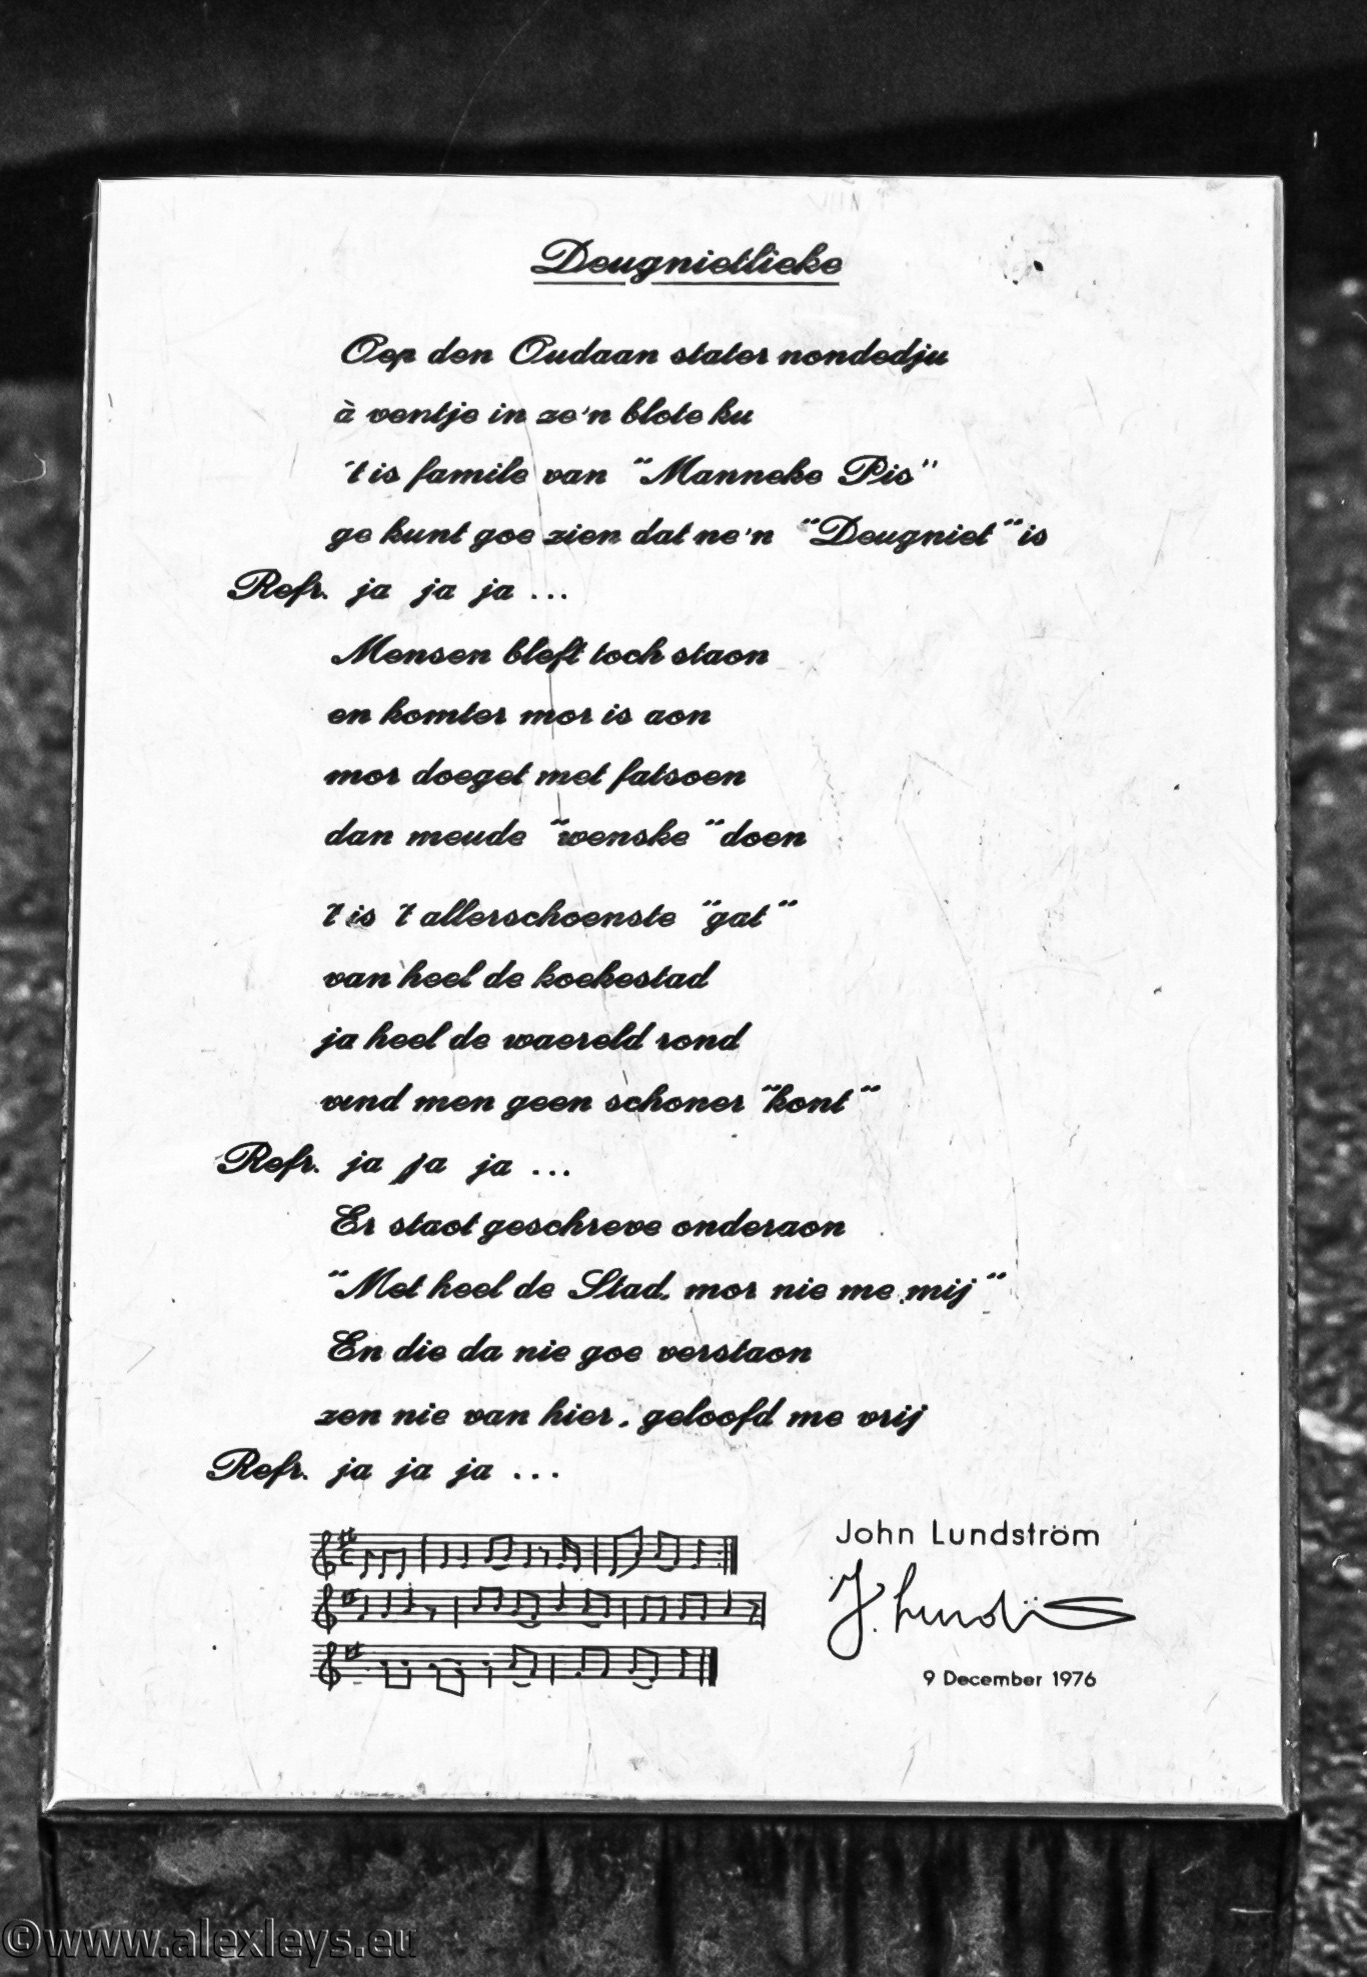 Deugnietlieke
Oep den Oudaan stater nondedju
à ventje in ze'n blote ku
't is famile van "Manneke Pis"
ge kunt goe zien dat ne'n "Deugniet" is
Refr. ja ja ja ...
Mensen bleft toch staon
en komter mor is aon
mor doeget met fatsoen
dan meude "wenske" doen
't is 't allerschoenste "gat"
van heel de koekestad
ja heel de waereld rond
vind men geen schoner "kont"
Refr. ja ja ja ...
Er staot geschreve onderaon
"Met heel de Stad, mor nie me mij"
En die da nie goe verstaon
zen nie van hier, geloofd me vrij
Refr. ja ja ja ...
John Lundström
J. Lundström
9 December 1976
©www.alexleys.eu